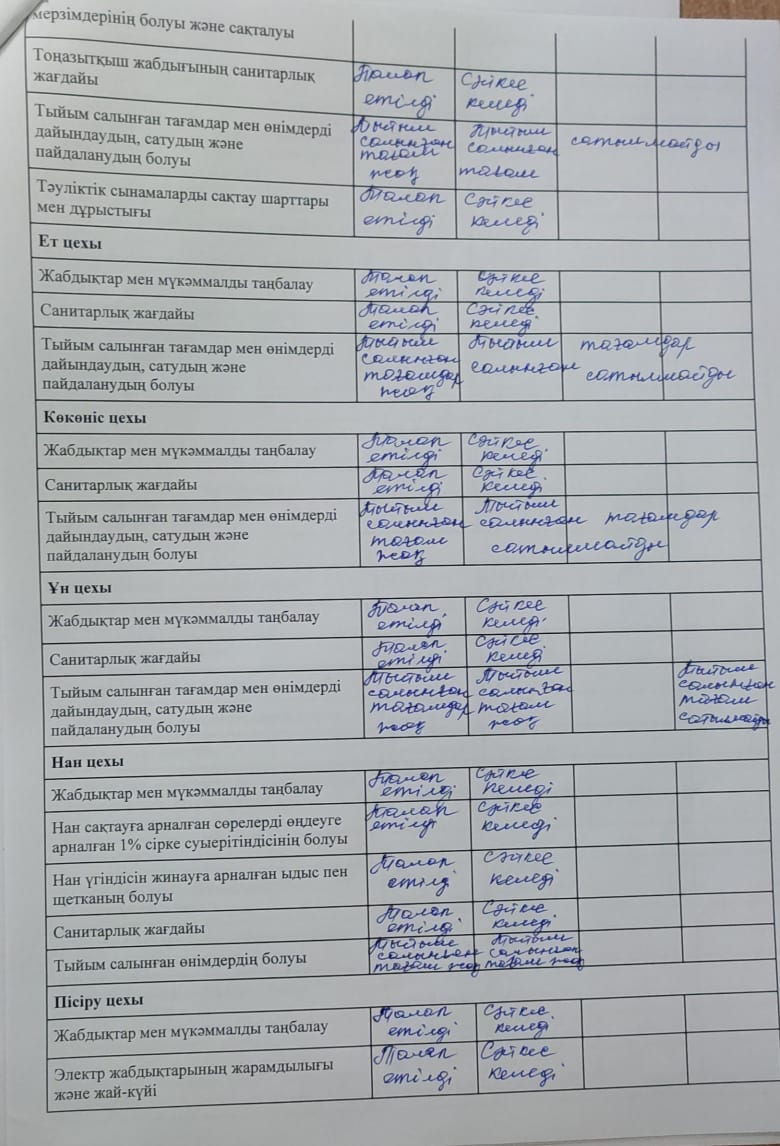 мерзімдерінің болуы және сақталуы
Тоңазытқыш жабдығының санитарлық Талап Сәйкес
жағдайы етілді келеді
Тыйым салынған тағамдар мен өнімдерді Тыйым Тыйым сатылмайды
дайындаудың, сатудың және салынған салынған
пайдаланудың болуы тағам тағам
жоқ
Тәуліктік сынамаларды сақтау шарттары Талап Сәйкес
мен дұрыстығы етілді келеді
Ет цехы
Жабдықтар мен мүкәммалды таңбалау Талап Сәйкес
етілді келеді
Санитарлық жағдайы Талап Сәйкес
етілді келеді
Тыйым салынған тағамдар мен өнімдерді Тыйым Тыйым тағамдар
дайындаудың, сатудың және салынған салынған сатылмайды
пайдаланудың болуы тағамдар
жоқ
Көкөніс цехы
Жабдықтар мен мүкәммалды таңбалау Талап Сәйкес
етілді келеді
Санитарлық жағдайы Талап Сәйкес
етілді келеді
Тыйым салынған тағамдар мен өнімдерді Тыйым Тыйым
дайындаудың, сатудың және салынған салынған тағамдар
пайдаланудың болуы тағам сатылмайды
жоқ
Ұн цехы
Жабдықтар мен мүкәммалды таңбалау Талап Сәйкес
етілді келеді
Санитарлық жағдайы Талап Сәйкес
етілді келеді
Тыйым салынған тағамдар мен өнімдерді Тыйым Тыйым Тыйым
дайындаудың, сатудың және салынған салынған салынған
пайдаланудың болуы тағамдар тағам тағам
жоқ жоқ сатылмайды
Нан цехы
Жабдықтар мен мүкәммалды таңбалау Талап Сәйкес
етілді келеді
Нан сақтауға арналған сөрелерді өңдеуге Талап Сәйкес
арналған 1% сірке суыерітіндісінің болуы етілді келеді
Нан үгіндісін жинауға арналған ыдыс пен Талап Сәйкес
щетканың болуы етілді келеді
Санитарлық жағдайы Талап Сәйкес
етілді келеді
Тыйым салынған өнімдердің болуы Тыйым Тыйым
салынған салынған
тағам жоқ тағам жоқ
Пісіру цехы
Жабдықтар мен мүкәммалды таңбалау Талап Сәйкес
етілді келеді
Электр жабдықтарының жарамдылығы Талап Сәйкес
және жай-күйі етілді келеді